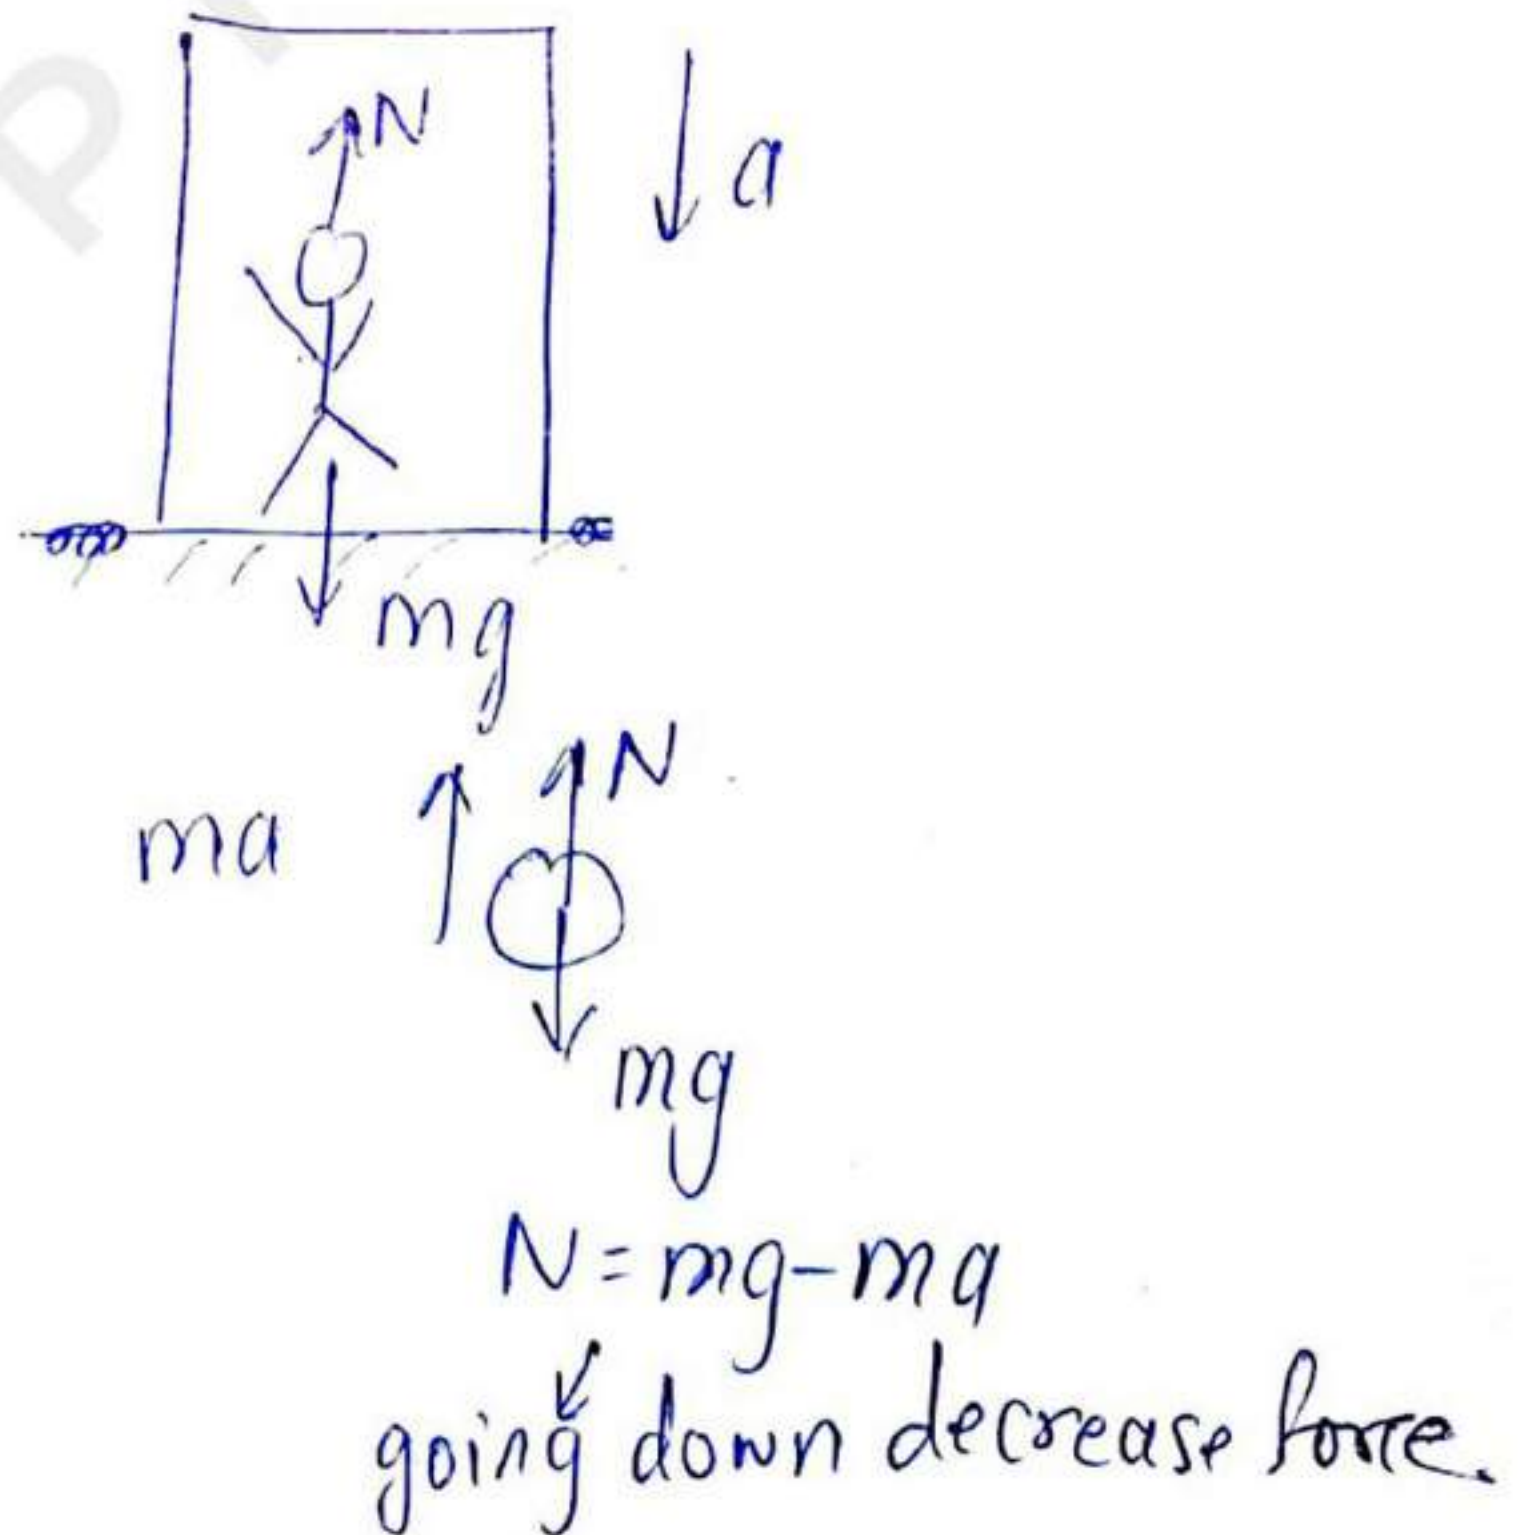 N
a
mg
N
ma
mg
N = mg - ma
going down decrease force.